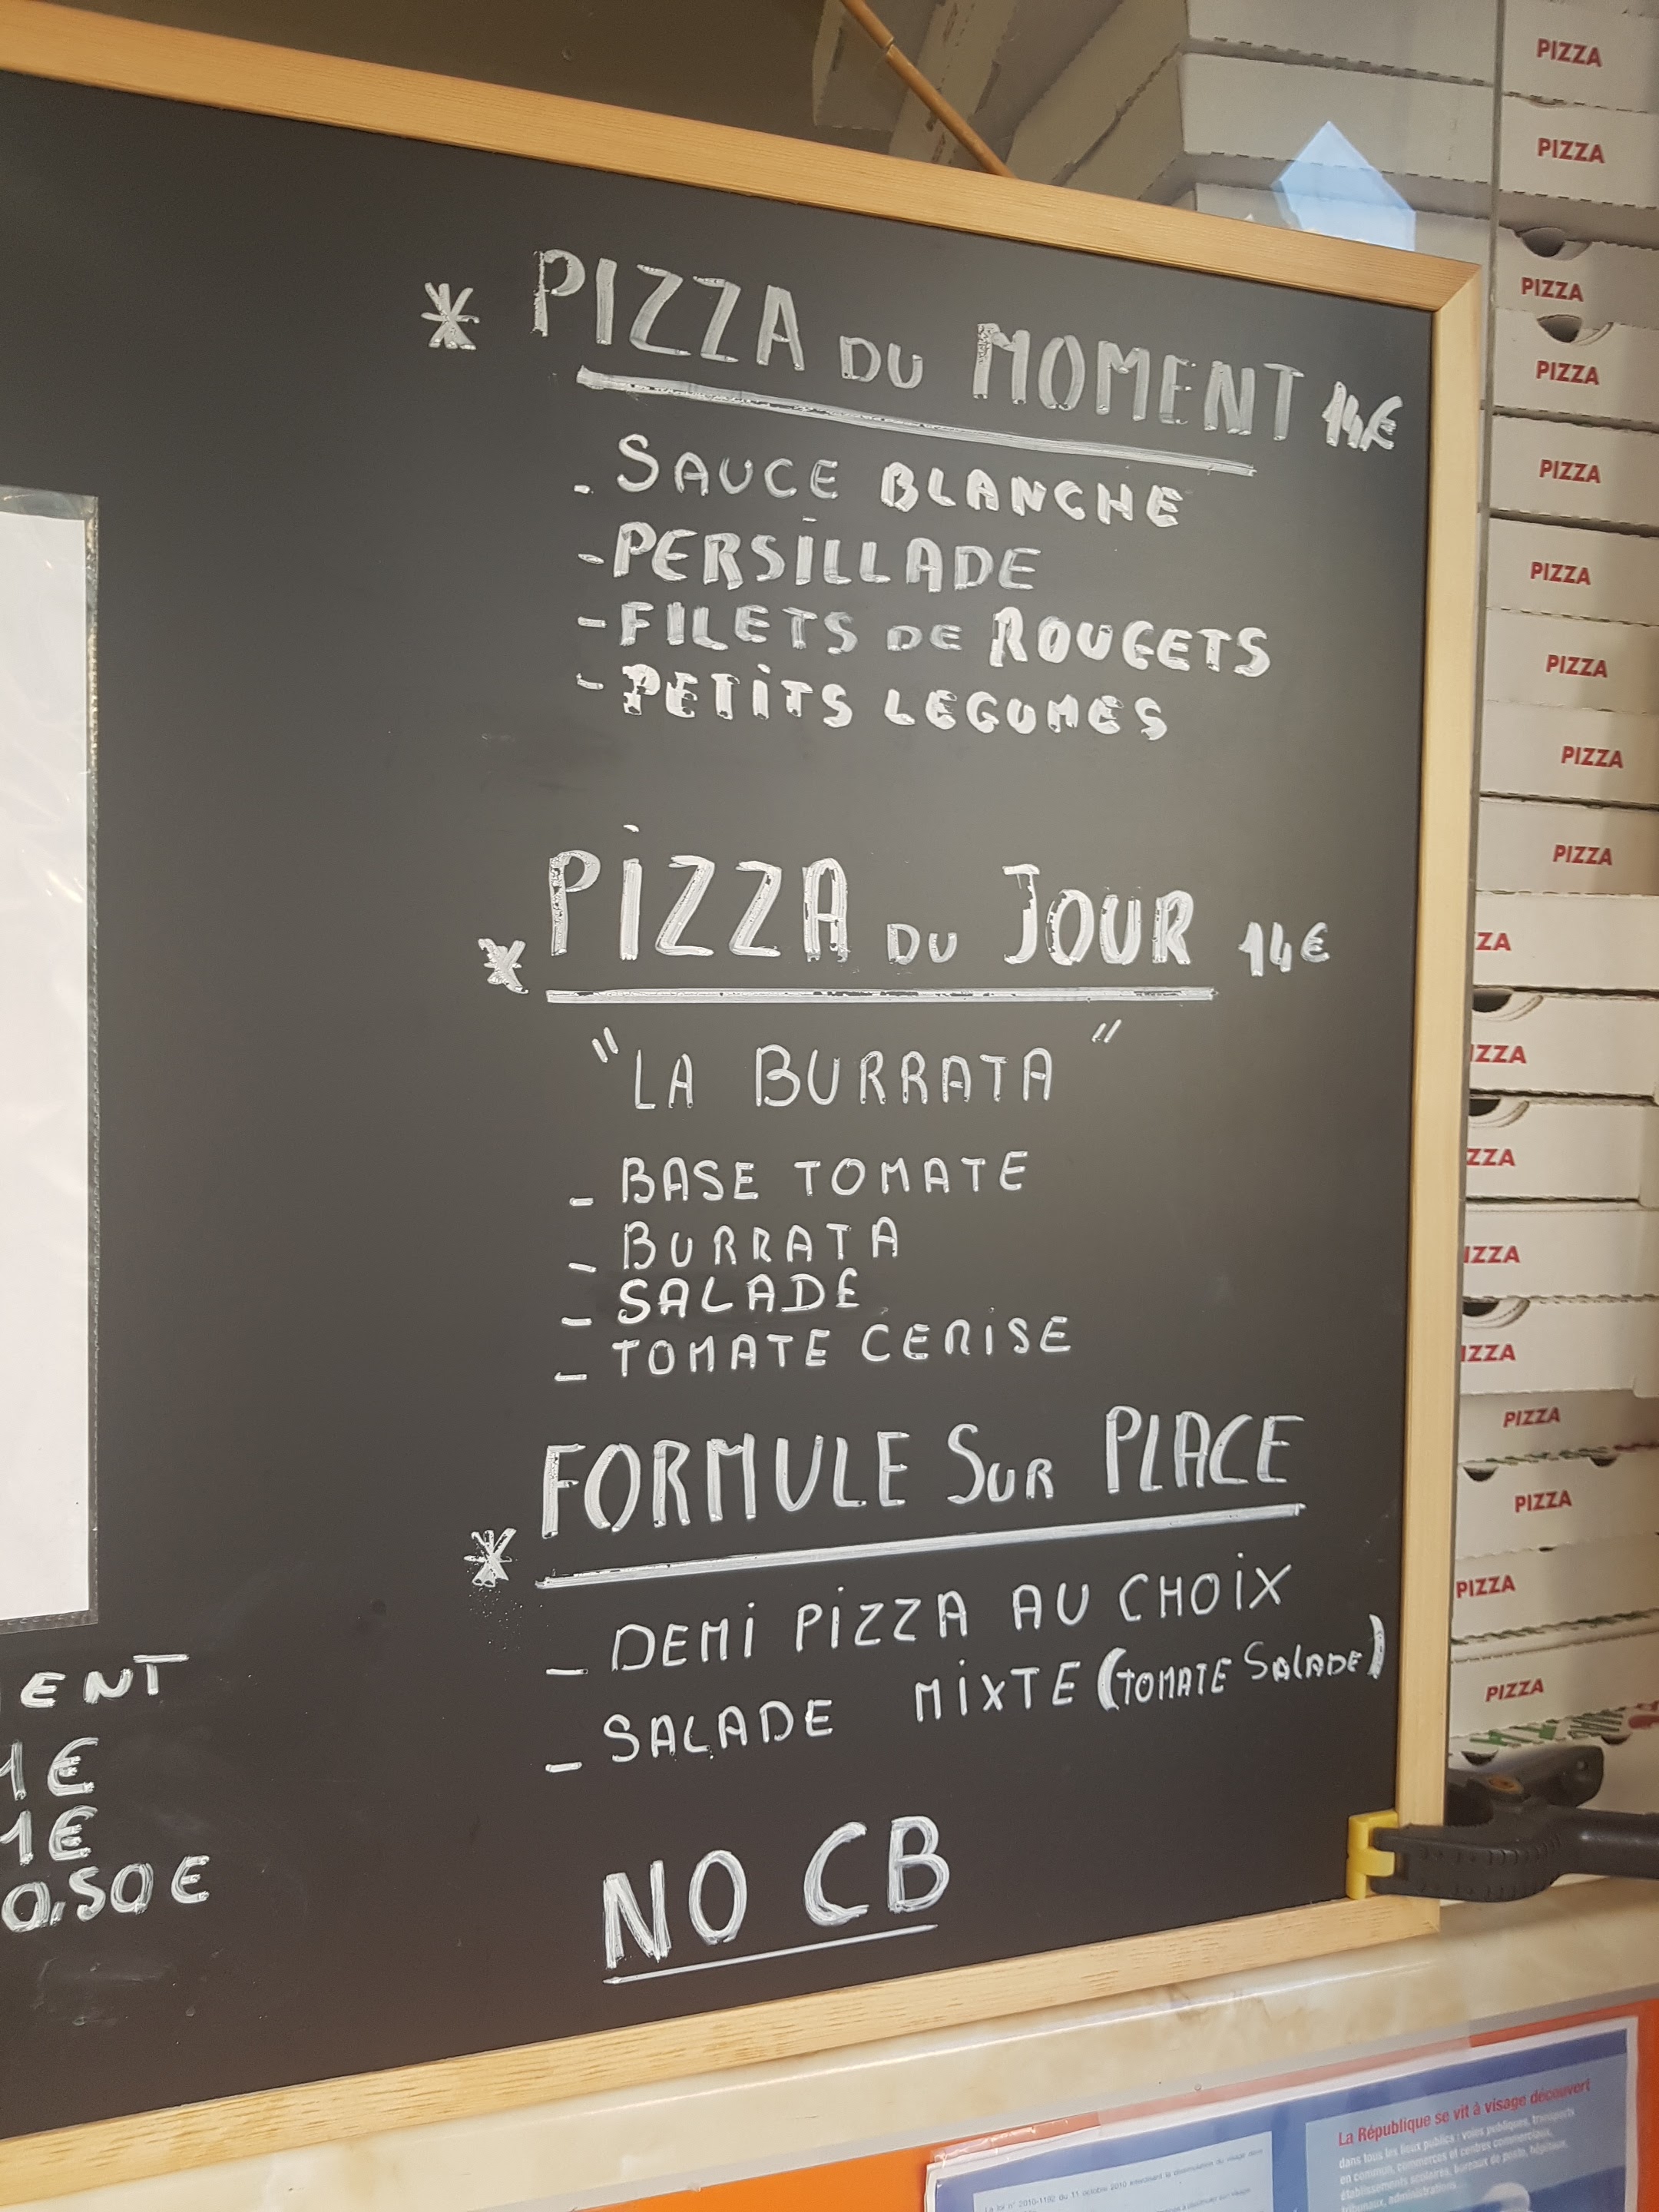 * PIZZA DU MOMENT 14€
- SAUCE BLANCHE
- PERSILLADE
- FILETS DE ROUGETS
- PETITS LEGUMES
* PIZZA DU JOUR 14€
"LA BURRATA"
- BASE TOMATE
- BURRATA
- SALADE
- TOMATE CERISE
* FORMULE SUR PLACE
- DEMI PIZZA AU CHOIX
- SALADE MIXTE (TOMATE SALADE)
NO CB
ENT
1€
1€
0,50€
PIZZA
PIZZA
PIZZA
PIZZA
PIZZA
PIZZA
PIZZA
PIZZA
PIZZA
ZZA
IZZA
ZZA
IZZA
IZZA
PIZZA
PIZZA
PIZZA
PIZZA
La République se vit à visage découvert
dans tous les lieux publics : voies publiques, transports
en commun, commerces et centres commerciaux,
établissements scolaires, bureaux de poste, hôpitaux,
tribunaux, administrations
La loi n° 2010-1192 du 11 octobre 2010 interdisant la dissimulation du visage